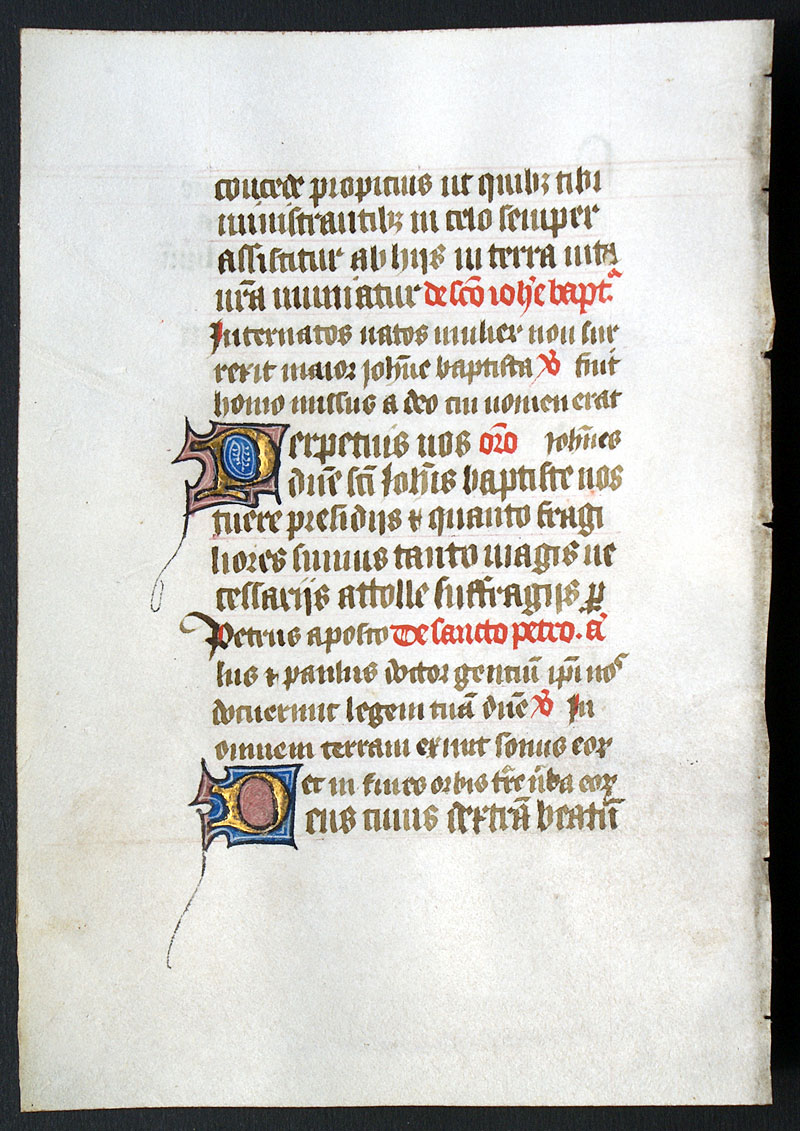 concede propicius ut quibꝫ tibi
ministrantibꝫ in celo semper
assistitur ab hijs in terra uita
nr̄a muniatur de sc̄o ioh̄e bapt.ᵃ
Internatos natos mulier non sur
rexit maior joh̄ne baptista ℣ fuit
homo missus a deo cui nomen erat
Perpetuis nos or̄o joh̄nes
dn̄e sc̄i Joh̄is baptiste nos
tuere presidijs ⁊ quanto fragi
liores sumus tanto magis ne
cessarijs attolle suffragijs ꝑ
Petrus aposto De sancto petro. a͞
lus ⁊ paulus doctor gentiū ip̄i nos
docuerunt legem tuā dn̄e ℣ In
omnem terram exiuit sonus eoꝝ
et in fines orbis tr̄e u̅ba eoꝝ
Deus cuius dextrā beatū